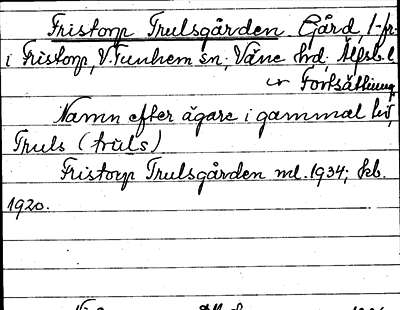 Fristorp Trulsgården Gård, 1-fr.
i Fristorp, V. Tunhem sn; Väne hd. Älfsb. l
Fortsättning
Namn efter ägare i gammal tid,
Truls (truls)
Fristorp Trulsgården ml. 1934; kb.
1920.